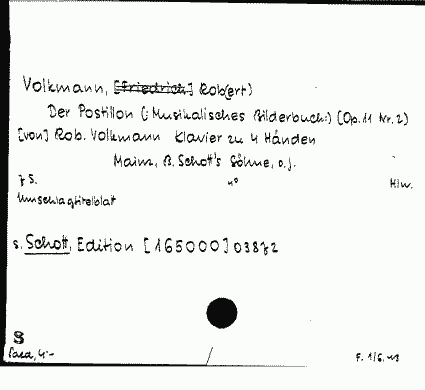 Volkmann, [Friedrich] Rob(ert)
Der Postillon (:Musikalisches Bilderbuch:) (Op. 11 Nr. 2)
[von] Rob. Volkmann Klavier zu 4 Händen
Mainz, B. Schott's Söhne, o. J.
7 S. 4° Hlw.
Umschlagtitelblatt
s. Schott, Edition [165000] 03872
8
F. 1/6.43